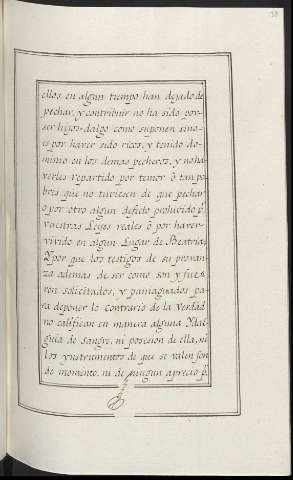 ellos en algun tiempo han dejado de
pechar, y contribuir no ha sido por
ser hijos-dalgo como suponen sino
es por haver sido ricos, y tenido do-
minio en los demas pecheros, y no ha
verles repartido por temor ô tan po-
bres que no tuviesen de que pechar
ô por otro algun defecto prohivido p.r
vuestras Leyes reales ô por haver
vivido en algun Lugar de Beatria,
Y por que los testigos de su provan-
za ademas de ser como son y fue-
ron solicitados, y paniaguados pa-
ra deponer lo contrario de la verdad
no califican en manera alguna Ydal
guia de sangre, ni posesion de ella, ni
los ynstrumentos de que se valen son
de momento, ni de ningun aprecio p.r